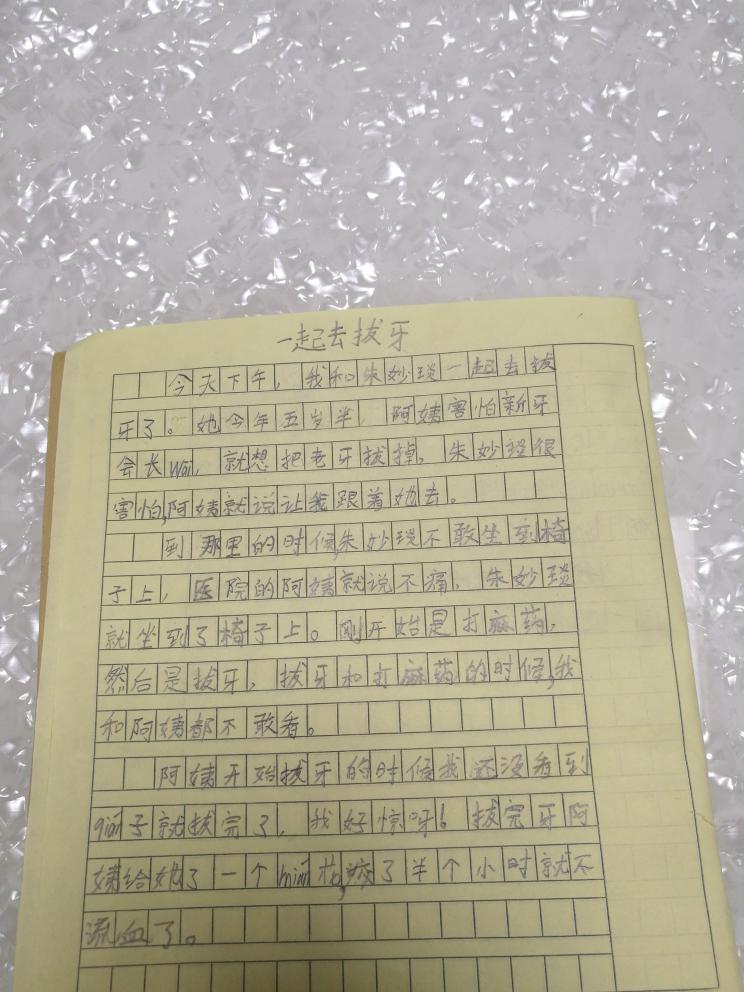 一起去拔牙
今天下午，我和朱妙琰一起去拔
牙了。她今年五岁半，阿姨害怕新牙
会长wāi，就想把老牙拔掉。朱妙琰很
害怕，阿姨就说让我跟着她去。
到那里的时候，朱妙琰不敢坐到椅
子上，医院的阿姨就说不痛，朱妙琰
就坐到了椅子上。刚开始是打麻药，
然后是拔牙，拔牙和打麻药的时候，我
和阿姨都不敢看。
阿姨开始拔牙的时候我还没看到
qián子就拔完了，我好惊呀！拔完牙阿
姨给她了一个mián花，咬了半个小时就不
流血了。